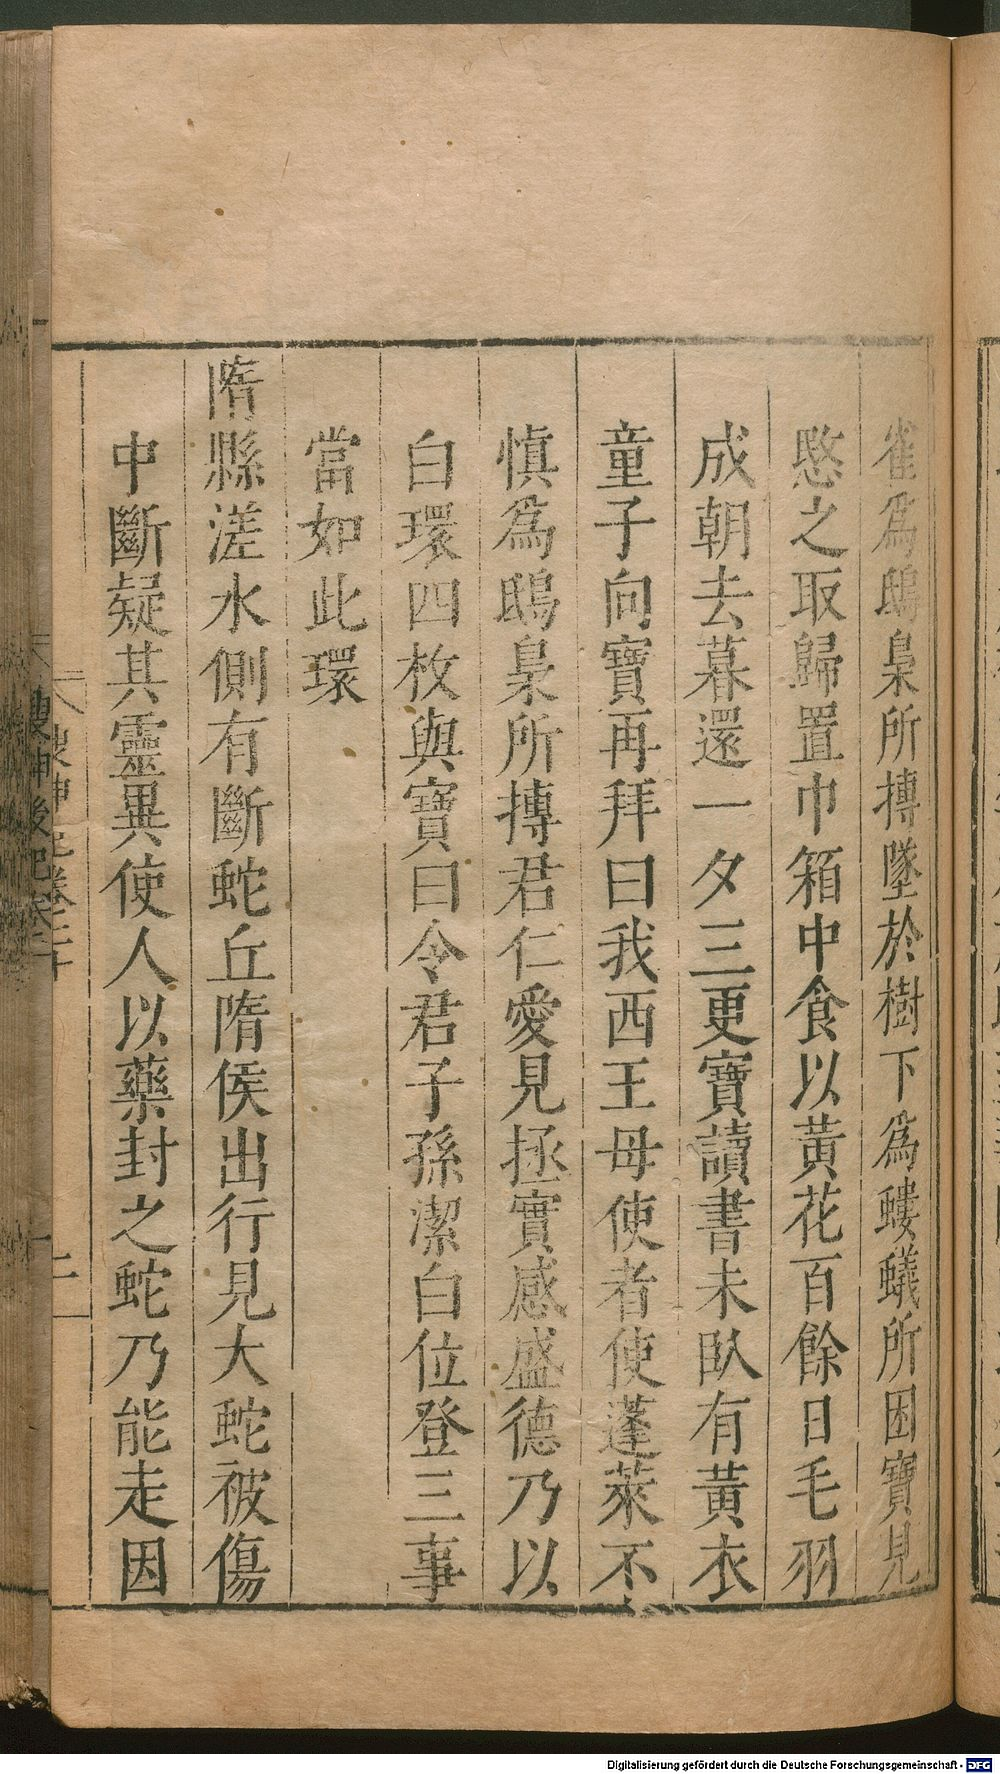 雀爲鴟梟所搏墜於樹下爲螻蟻所困寶見
愍之取歸置巾箱中食以黃花百餘日毛羽
成朝去暮還一夕三更寶讀書未臥有黃衣
童子向寶再拜曰我西王母使者使蓬萊不
愼爲鴟梟所搏君仁愛見拯實感盛德乃以
白環四枚與寶曰令君子孫潔白位登三事
當如此環
隋縣溠水側有斷蛇丘隋侯出行見大蛇被傷
中斷疑其靈異使人以藥封之蛇乃能走因
搜神記卷二十
二
Digitalisierung gefördert durch die Deutsche Forschungsgemeinschaft - DFG